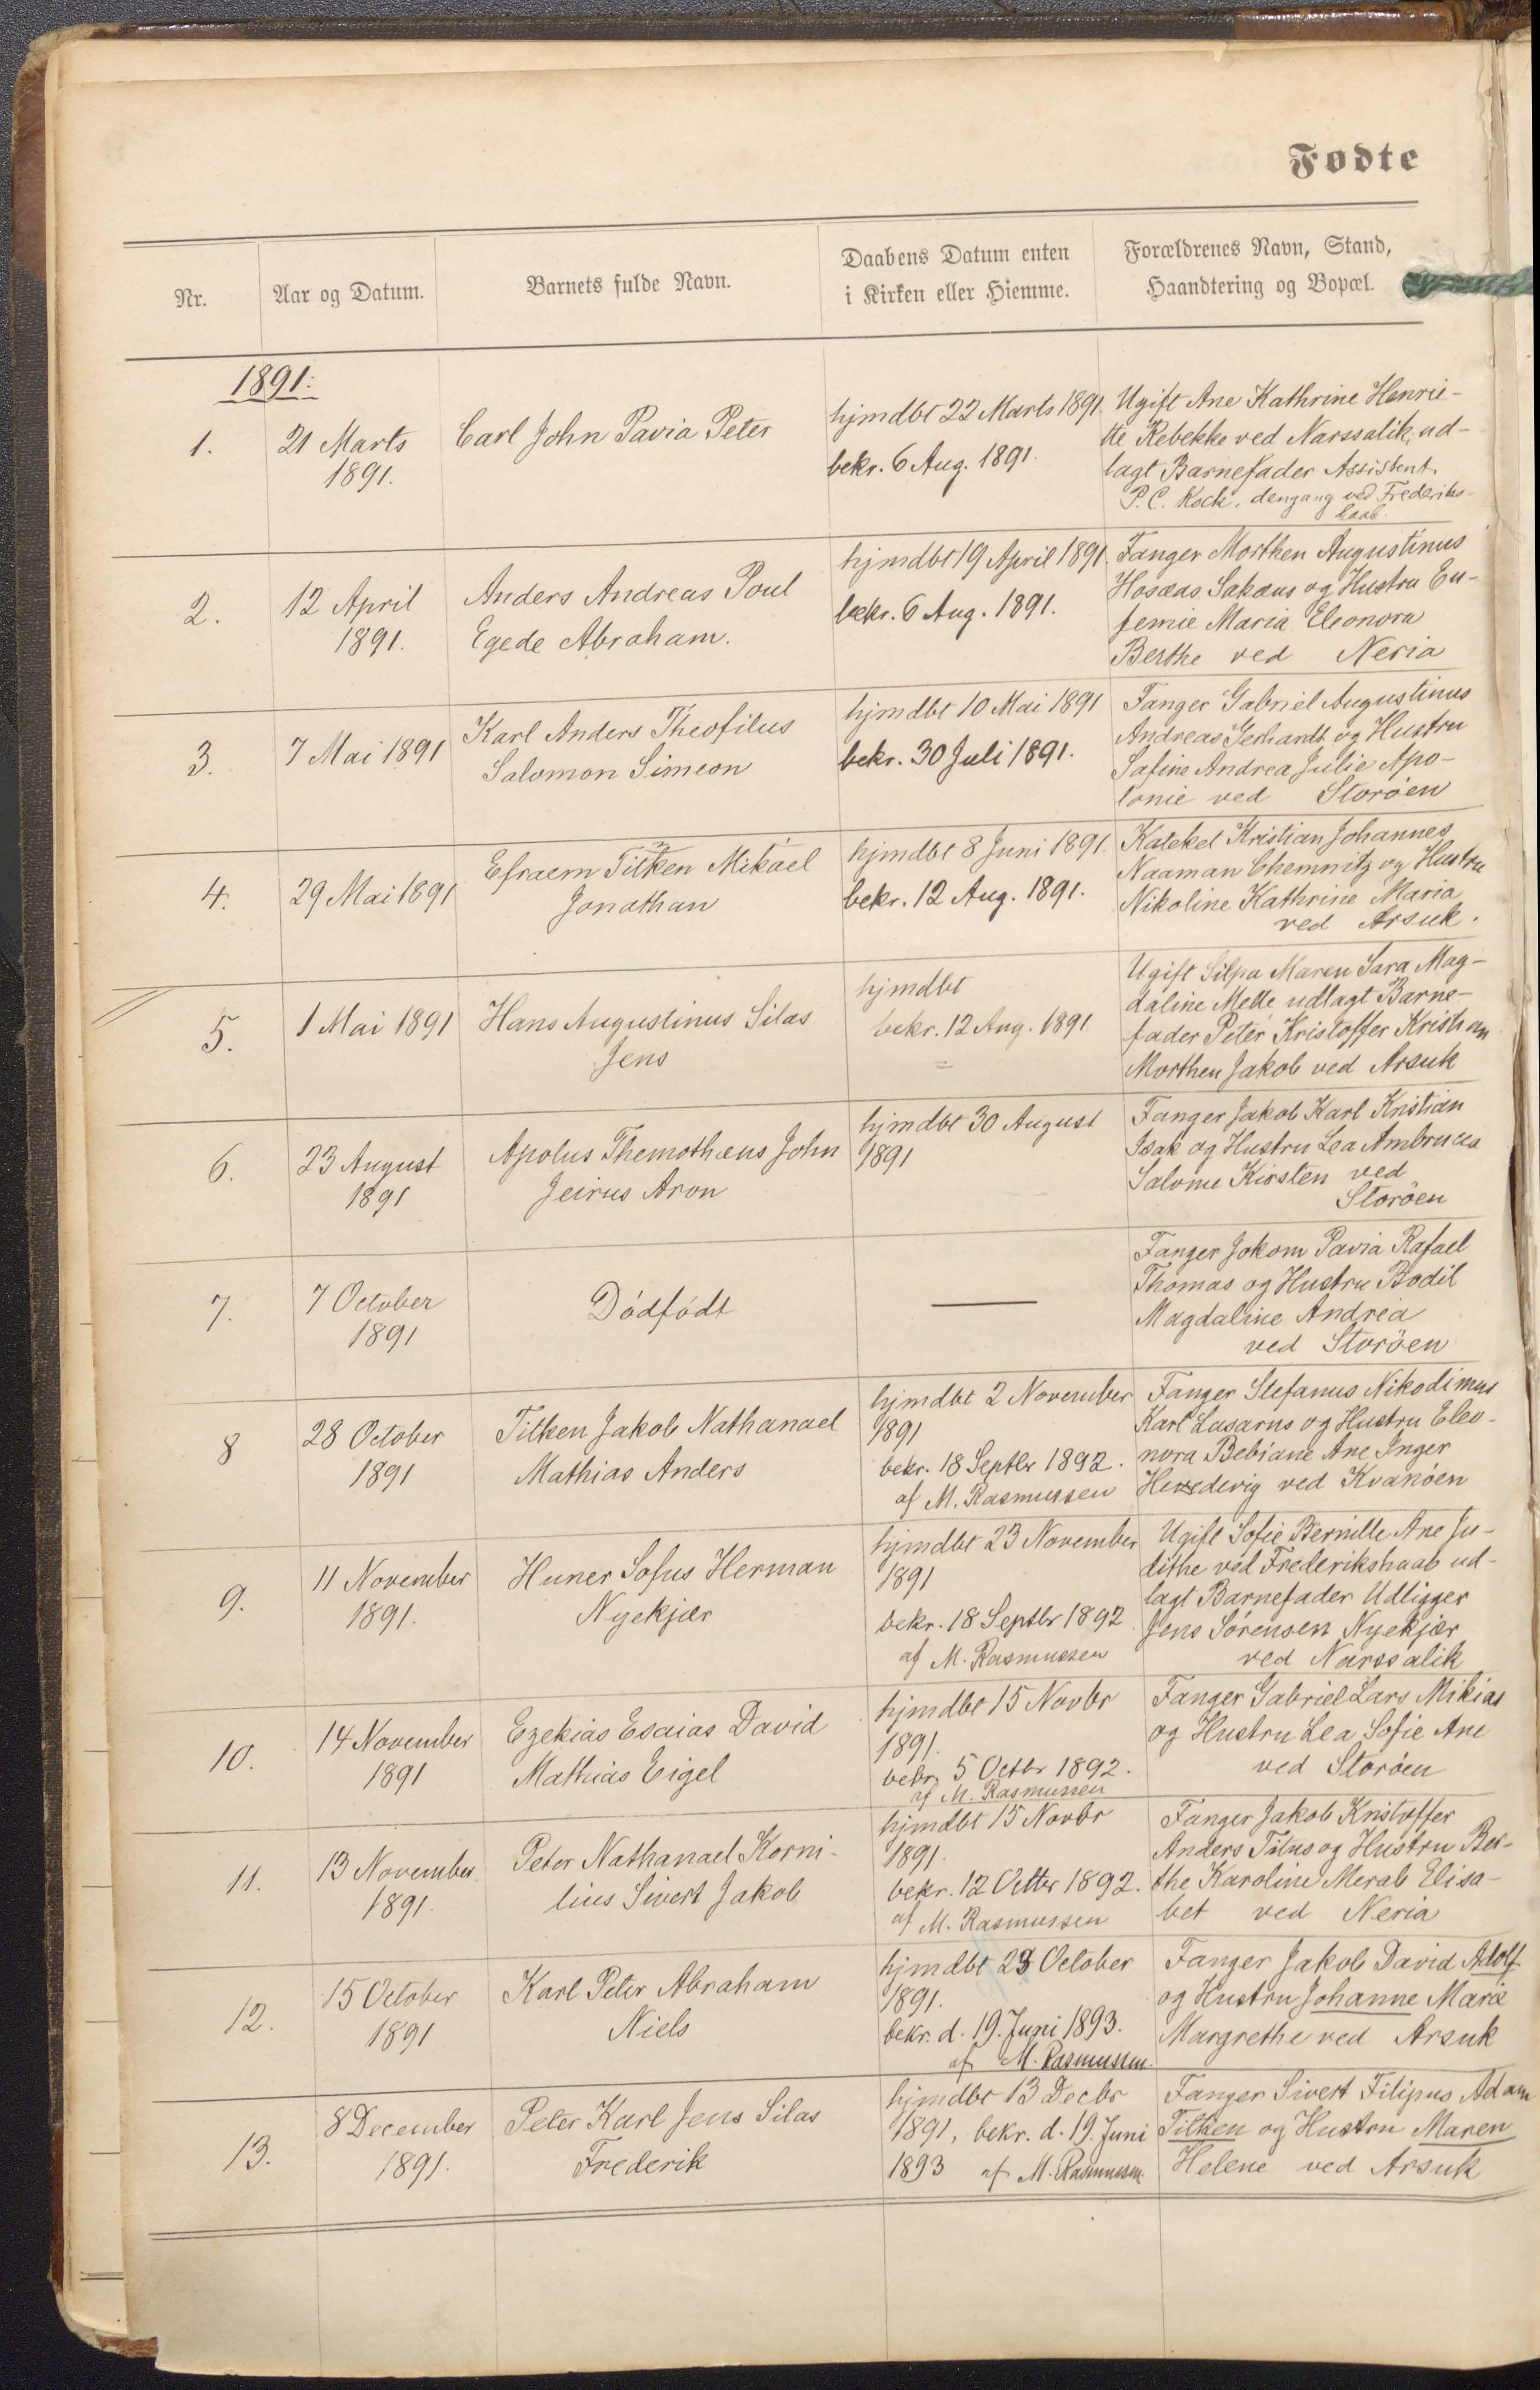 Fødte
Nr.
Aar og Datum.
Barnets fulde Navn.
Daabens Datum enten
i Kirken eller Hiemme.
Forældrenes Navn, Stand,
Haandtering og Bopæl.
1891:
1.
21 Marts
1891.
Carl John Pavia Peter
hjmdbt 22 Marts 1891.
bekr. 6 Aug. 1891.
Ugift Ane Kathrine Henrie-
tte Rebekke ved Narssalik, ud-
lagt Barnefader Assistent
P.C. Kock, dengang ved Frederiks-
haab.
2.
12 April
1891.
Anders Andreas Poul
Egede Abraham.
hjmdbt 19 April 1891.
bekr. 6 Aug. 1891.
Fanger Morthen Augustinus
Hosæas Sakæus og Hustru Eu-
femie Maria Eleonora
Berthe ved Neria
3.
7 Mai 1891
Karl Anders Theofilus
Salomon Simeon
hjmdbt 10 Mai 1891
bekr. 30 Juli 1891.
Fanger Gabriel Augustinus
Andreas Gerhardt og Hustru
Safine Andrea Julie Apo-
lonie ved Storøen
4.
29 Mai 1891
Efraem Titken Mikael
Jonathan
hjmdbt 8 Juni 1891
bekr. 12 Aug. 1891.
Kateket Kristian Johannes
Naaman Chemnitz og Hustru
Nikoline Kathrine Maria
ved Arsuk.
5.
1 Mai 1891
Hans Augustinus Silas
Jens
hjmdbt
bekr. 12 Aug. 1891
Ugift Silpa Maren Sara Mag-
daline Mette udlagt Barne-
fader Peter Kristoffer Kristian
Morthen Jakob ved Arsuk
6.
23 August
1891
Apolus Themothæus John
Jeirus Aron
hjmdbt 30 August
1891
Fanger Jakob Karl Kristian
Isak og Hustru Lea Ambrucea
Salome Kirsten ved
Storöen
7.
7 October
1891
Dødfødt
Fanger Jokom Pavia Rafael
Thomas og Hustru Bodil
Magdaline Andrea
ved Storöen
8
28 October
1891
Titken Jakob Nathanael
Mathias Anders
hjmdbt 2 November
1891
bekr. 18 Septbr 1892.
af M. Rasmussen
Fanger Stefanus Nikodimus
Karl Lasarus og Hustru Eleo-
nora Bebiane Ane Inger
Hedevig ved Kvanöen
9.
11 November
1891.
Huner Sofus Herman
Nyekjær
hjmdbt 23 November
1891
bekr. 18 Septbr 1892
af M. Rasmussen
Ugift Sofie Bernille Ane Ju-
dithe ved Frederikshaab ud-
lagt Barnefader Udligger
Jens Sørensen Nyekjær
ved Narssalik
10.
14 November
1891
Ezekias Esaias David
Mathias Eigel
hjmdbt 15 Novbr
1891.
bekr. 5 Octbr 1892.
af M. Rasmussen
Fanger Gabriel Lars Mikias
og Hustru Lea Sofie Ane
ved Storöen
11.
13 November
1891.
Peter Nathanael Korni-
lius Sivert Jakob
hjmdbt 15 Novbr
1891.
bekr. 12 Octbr 1892.
af M. Rasmussen
Fanger Jakob Kristoffer
Anders Titus og Hustru Ber-
the Karoline Merab Elisa-
bet ved Neria
12.
15 October
1891
Karl Peter Abraham
Niels
hjmdbt 23 October
1891.
bekr. d. 19. Juni 1893.
af M. Rasmussen.
Fanger Jakob David Adolf
og Hustru Johanne Marie
Margrethe ved Arsuk
13.
8 December
1891.
Peter Karl Jens Silas
Frederik
hjmdbt 13 Decbr
1891, bekr. d. 19. Juni
1893 af M. Rasmussen
Fanger Sivert Filipus Adam
Titken og Hustru Maren
Helene ved Arsuk